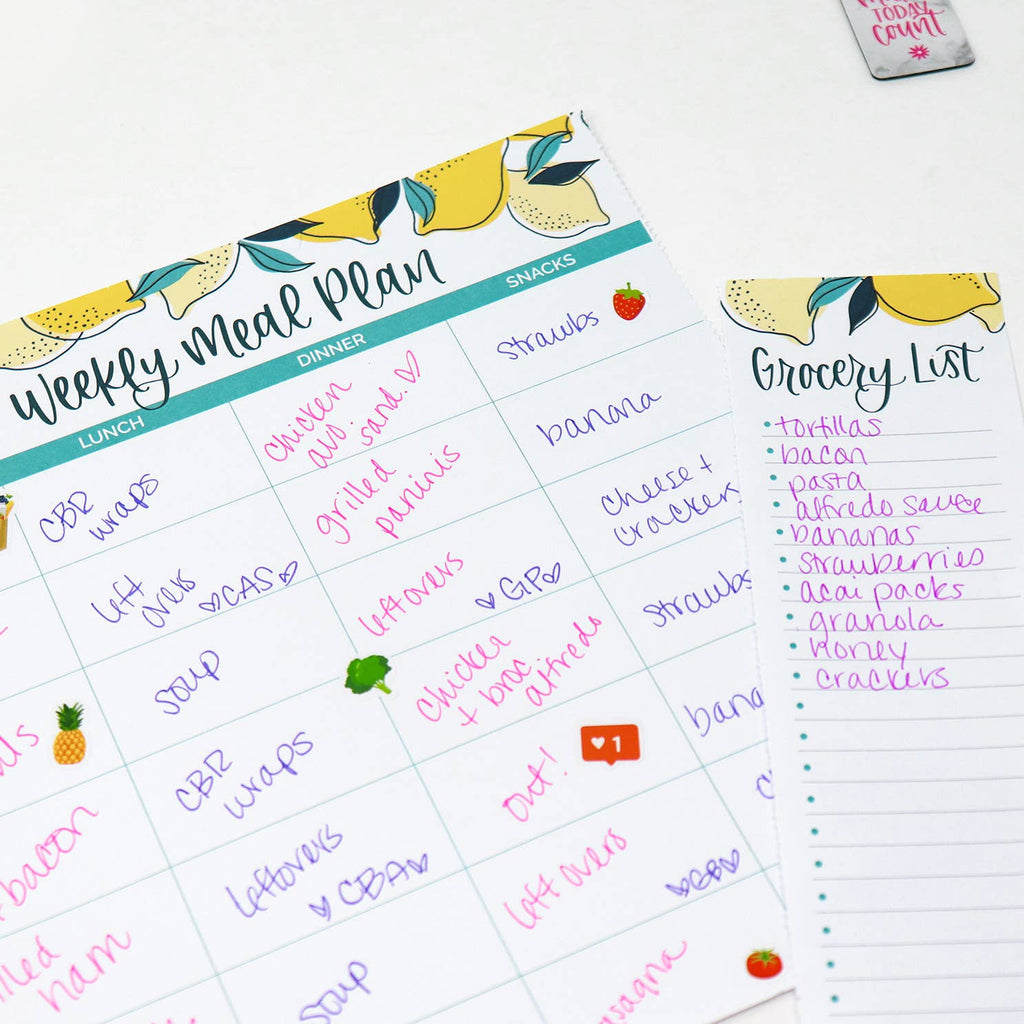 TODAY
count
Weekly Meal Plan
LUNCH
DINNER
SNACKS
CBR
wraps
chicken
avo. sand.
strawbs
left
overs
CAS
grilled
paninis
banana
soup
leftovers
GP
cheese +
crackers
CBR
wraps
chicken
+ broc
alfredo
strawbs
bacon
leftovers
CBA
out!
1
ham
soup
left overs
GB
Grocery List
tortillas
bacon
pasta
alfredo sauce
bananas
strawberries
acai packs
granola
honey
crackers